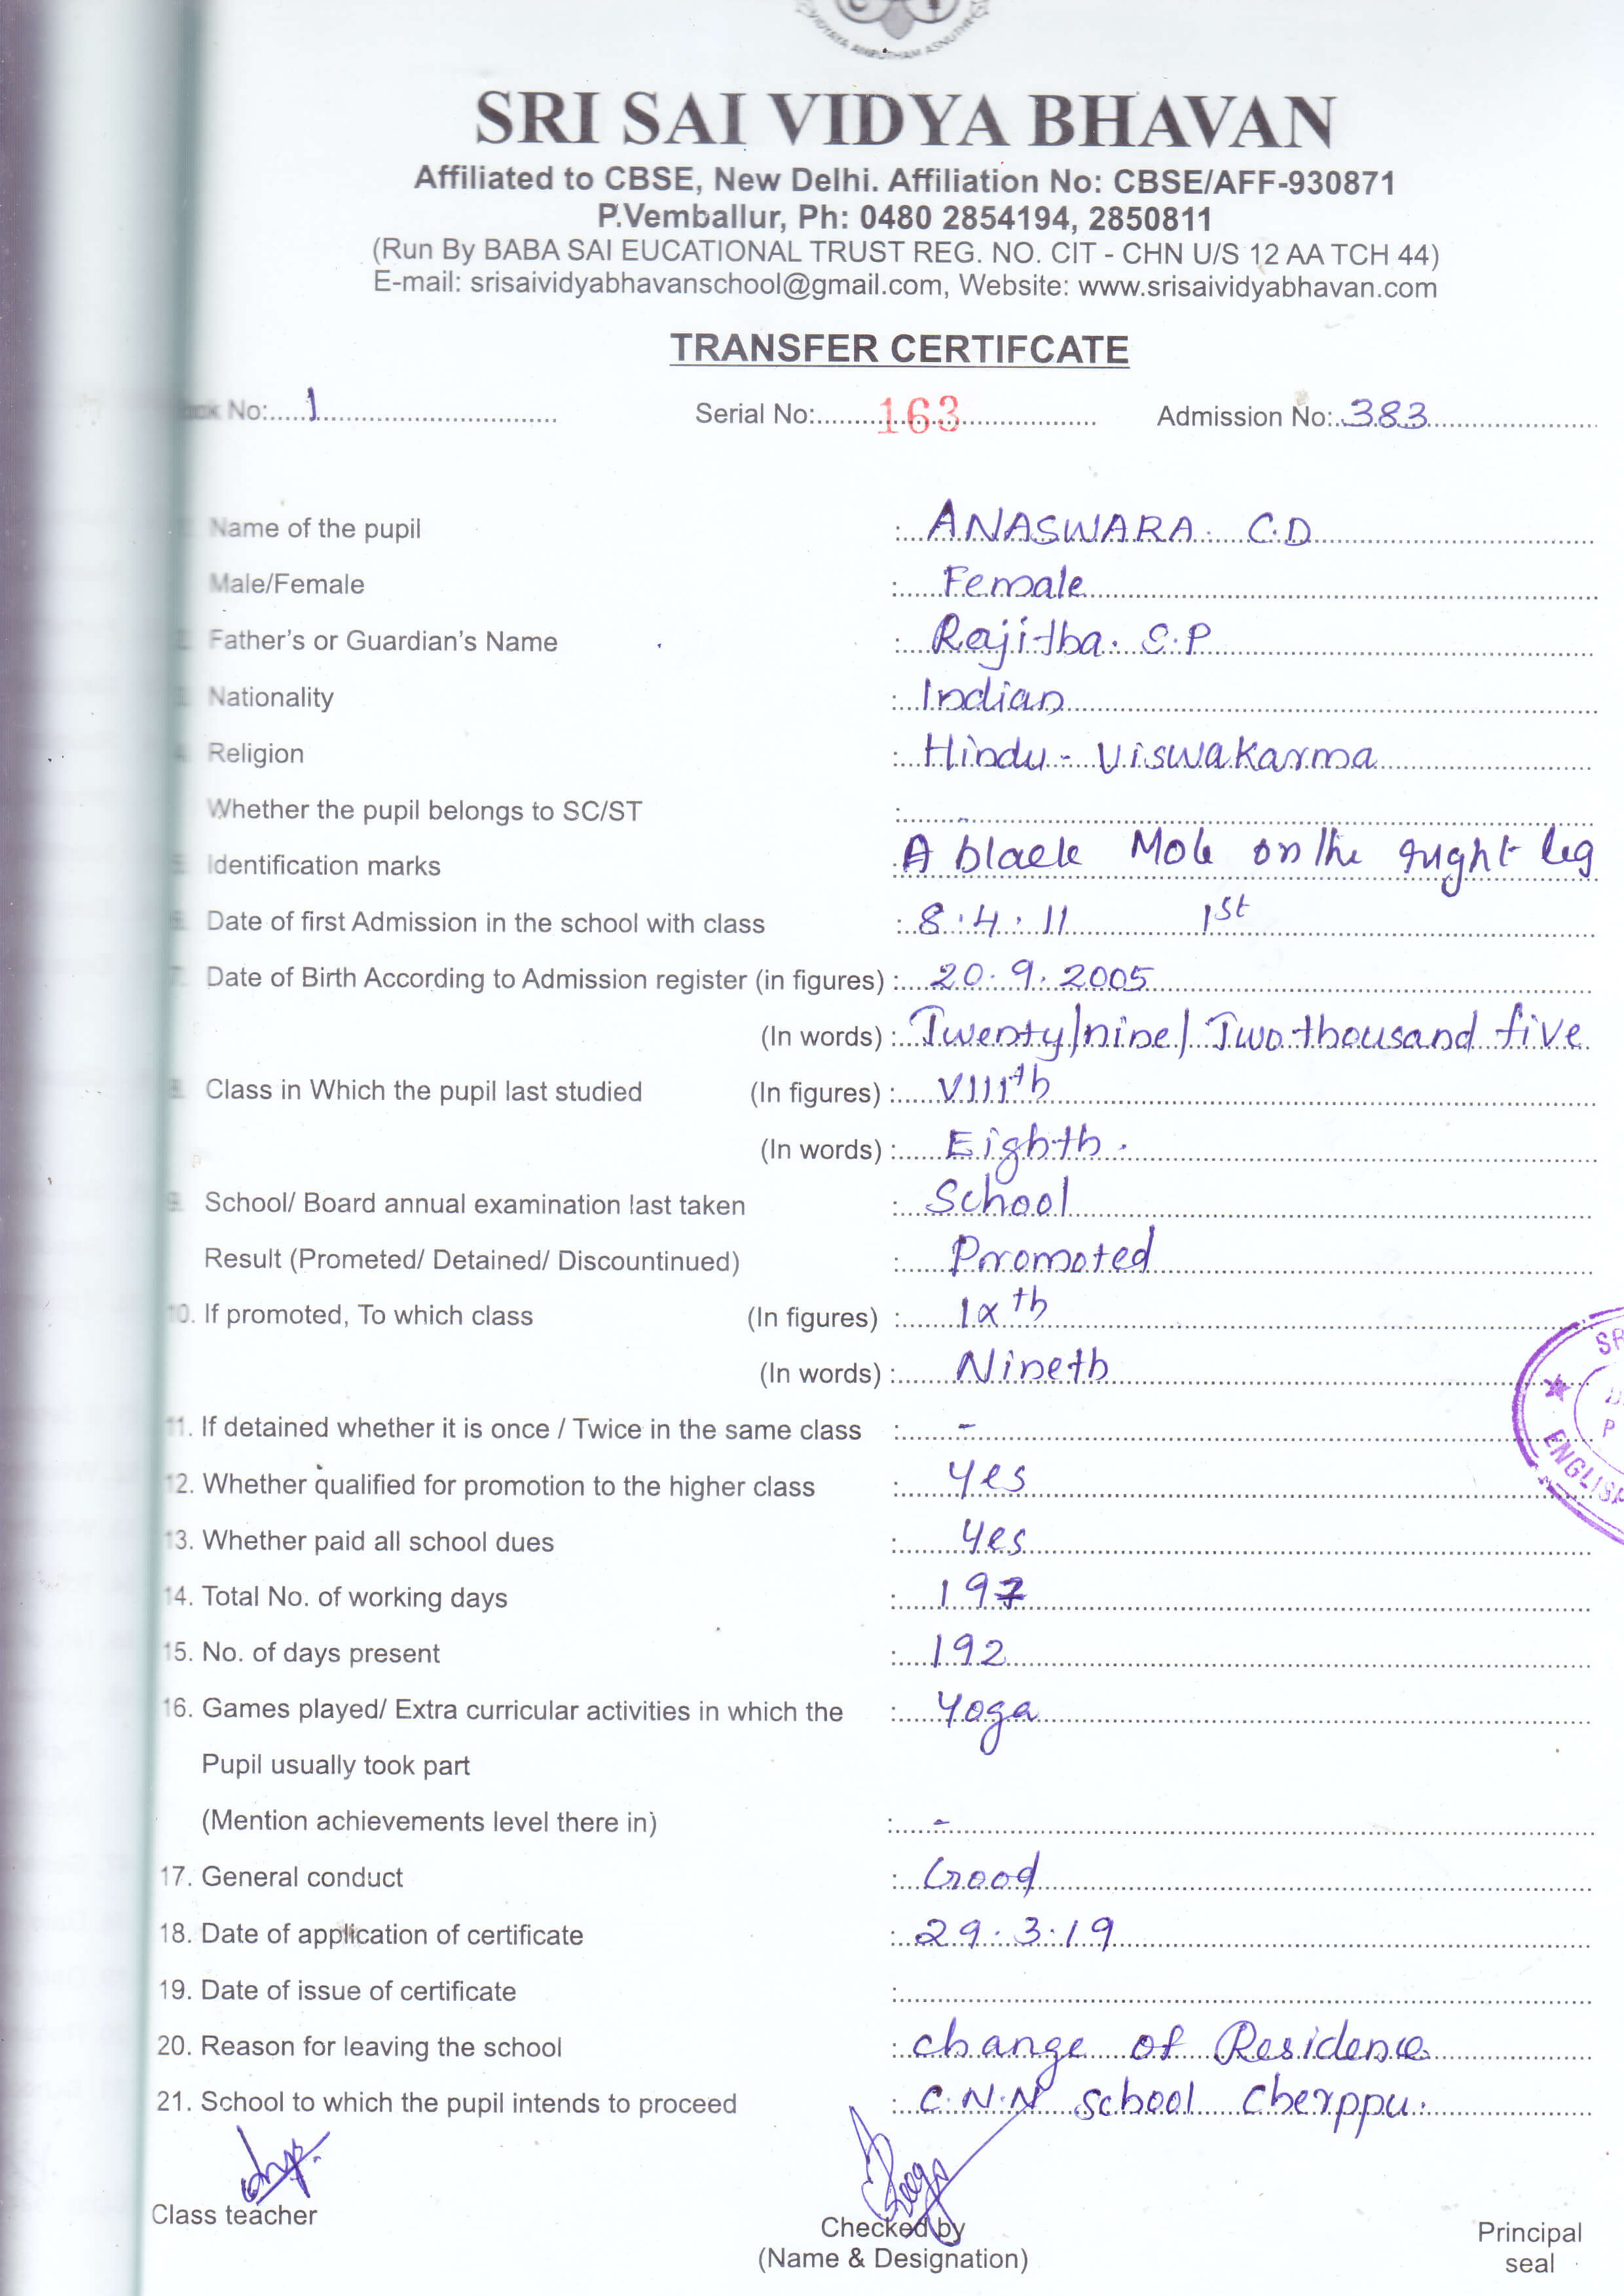 VIDYAYA AMRUTHAM ASNUTHE
SRI SAI VIDYA BHAVAN
Affiliated to CBSE, New Delhi. Affiliation No: CBSE/AFF-930871
P.Vemballur, Ph: 0480 2854194, 2850811
(Run By BABA SAI EUCATIONAL TRUST REG. NO. CIT - CHN U/S 12 AA TCH 44)
E-mail: srisaividyabhavanschool@gmail.com, Website: www.srisaividyabhavan.com
TRANSFER CERTIFCATE
No: 1 Serial No: 163 Admission No: 383
Name of the pupil : ANASWARA. C.D
Male/Female : Female
Father's or Guardian's Name : Rajitha. C.P
Nationality : Indian
Religion : Hindu - Viswakarma
Whether the pupil belongs to SC/ST :
Identification marks : A black Mole on the right leg
Date of first Admission in the school with class : 8.4.11 1st
Date of Birth According to Admission register (in figures) : 20.9.2005
(In words) : Twenty/nine/Two thousand five
Class in Which the pupil last studied (In figures) : VIIIth
(In words) : Eighth.
School/ Board annual examination last taken : School
Result (Prometed/ Detained/ Discountinued) : Promoted
10. If promoted, To which class (In figures) : IXth
(In words) : Nineth
11. If detained whether it is once / Twice in the same class : -
12. Whether qualified for promotion to the higher class : Yes
13. Whether paid all school dues : Yes
14. Total No. of working days : 197
15. No. of days present : 192
16. Games played/ Extra curricular activities in which the : Yoga
Pupil usually took part
(Mention achievements level there in) : -
17. General conduct : Good
18. Date of application of certificate : 29.3.19
19. Date of issue of certificate :
20. Reason for leaving the school : change of Residence
21. School to which the pupil intends to proceed : C.N.N school Cherppu.
Class teacher
Checked by
(Name & Designation)
Principal
seal